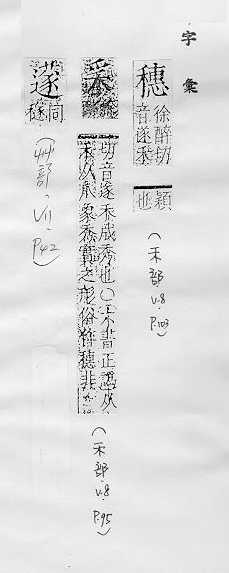 字彙
穗
徐醉切
音遂禾
穎
也
(禾部 V.8 P.103)
切音遂禾成秀也〇六書正譌从
禾从爪象禾穎之形俗作穗非
(禾部 V.8 P.95)
蓫
同
(艸部 V.11 P.42)